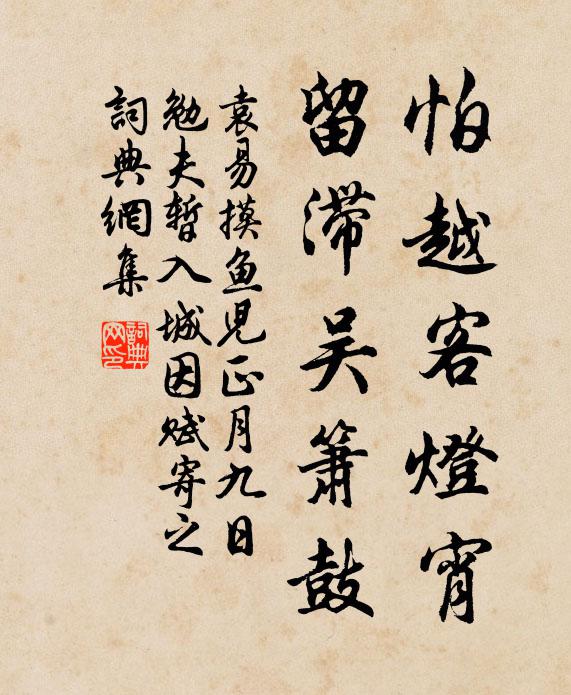 怕越客燈宵
留滯吴簫鼓
袁易摸鱼児正月九日
勉夫暫入城因赋寄之
詞典網集
詞典网印